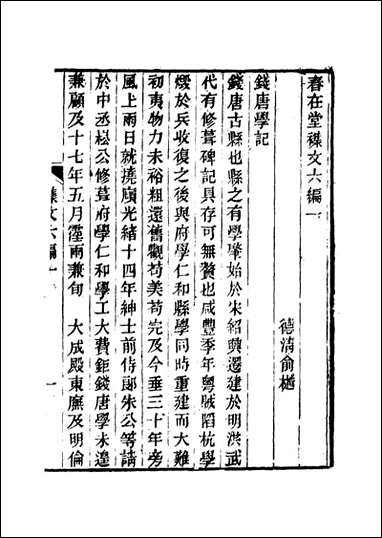 春在堂襍文六編一
德清俞樾
錢唐學記
錢唐古縣也縣之有學肇始於宋紹興遷建於明洪武
代有修葺碑記具存可無贅也咸豐季年粵賊陷杭學
燬於兵收復之後與府學仁和縣學同時重建而大難
初夷物力未裕粗還舊觀苟美苟完及今垂三十年旁
風上雨日就撓𢷬光緒十四年紳士前侍郞朱公等請
於中丞崧公修葺府學仁和學工大費鉅錢唐學未遑
兼顧及十七年五月霪雨兼旬　大成殿東廡及明倫
襍文六編一
一